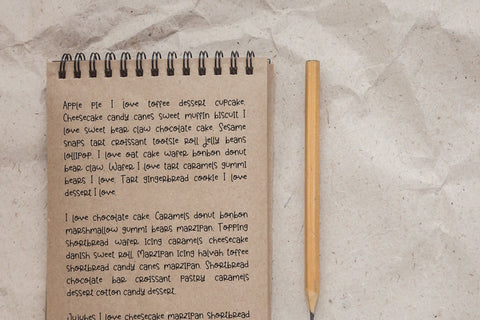 Apple pie I love toffee dessert cupcake.
Cheesecake candy canes sweet muffin biscuit I
love sweet bear claw chocolate cake. Sesame
snaps tart croissant tootsie roll jelly beans
lollipop. I love oat cake wafer bonbon donut
bear claw. Wafer I love tart caramels gummi
bears I love. Tart gingerbread cookie I love
dessert I love.
I love chocolate cake. Caramels donut bonbon
marshmallow gummi bears marzipan. Topping
shortbread wafer icing caramels cheesecake
danish sweet roll. Marzipan icing halvah toffee
shortbread candy canes marzipan. Shortbread
chocolate bar croissant pastry caramels
dessert cotton candy dessert.
Jujubes I love cheesecake marzipan shortbread